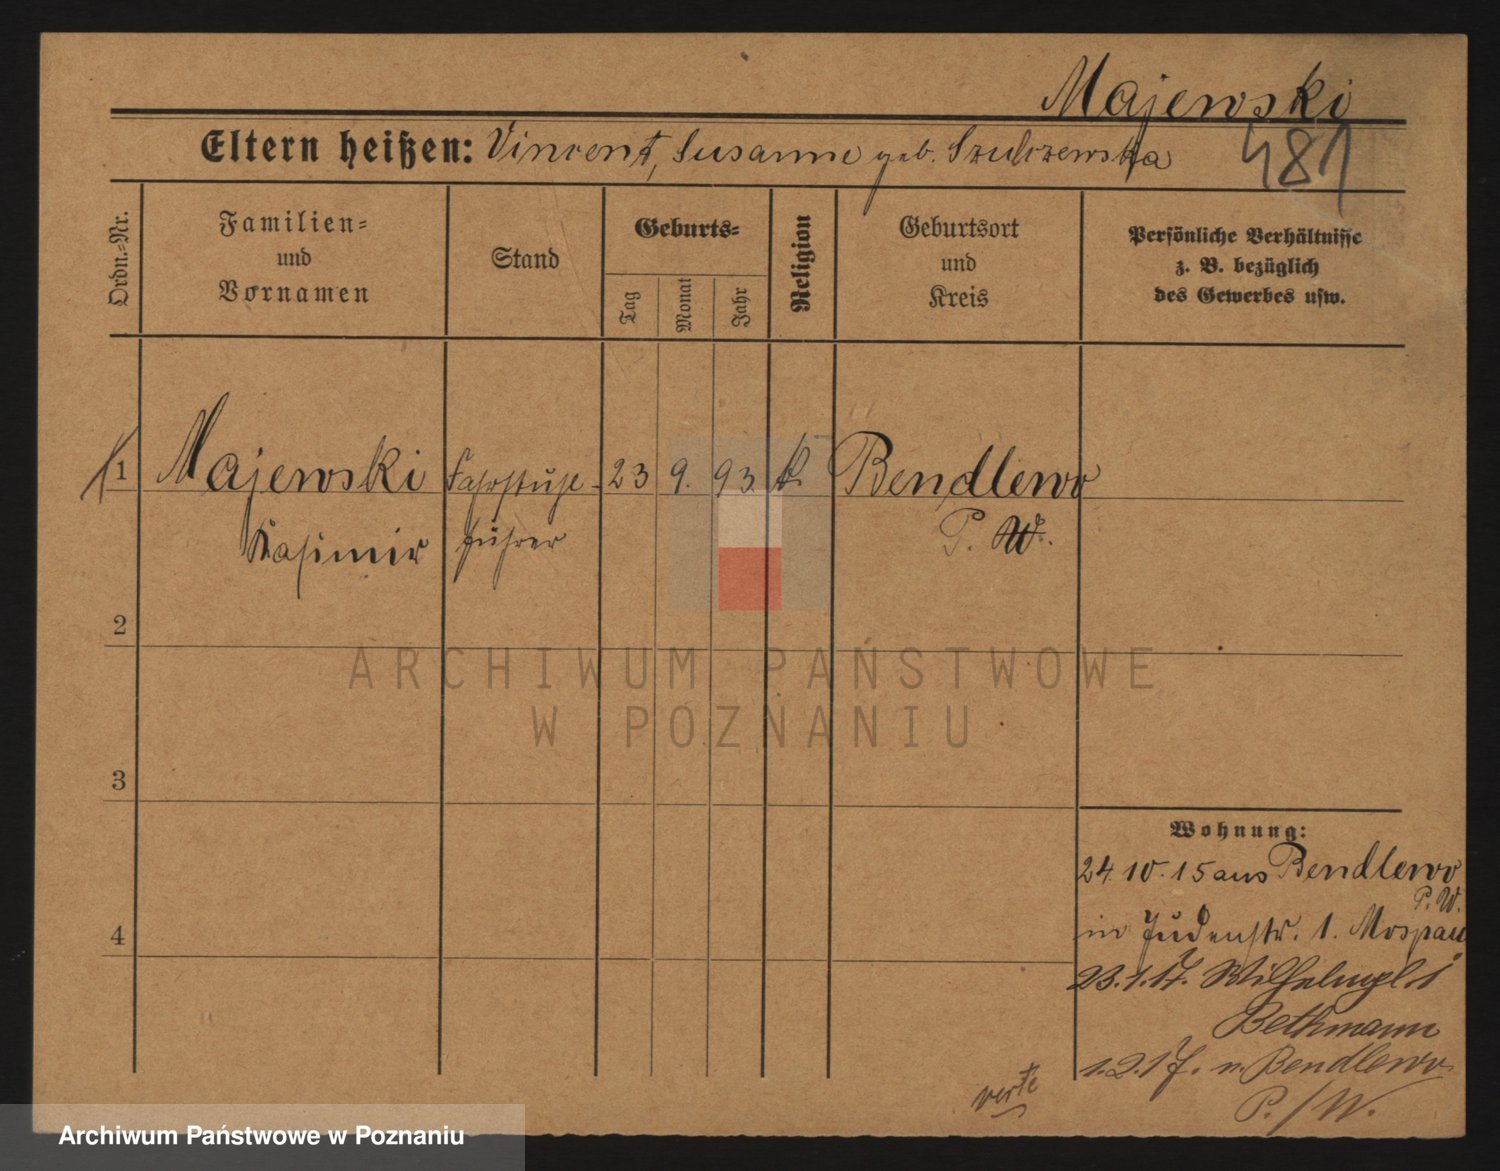 Majewski
481
Eltern heißen: Vincent, Susanne geb. Szulczewska
Ordn.-Nr.
Familien-
und
Vornamen
Stand
Geburts-
Tag
Monat
Jahr
Religion
Geburtsort
und
Kreis
Persönliche Verhältnisse
z. B. bezüglich
des Gewerbes usw.
1 Majewski Fahrstuhl- 23 9. 93. k. Bendlewo
Kasimir führer P. W.
2
3
4
Wohnung:
24.10.15 aus Bendlewo
P. W.
in Judenstr. 1.
23.1.17. Wilhelmpl. 1
Bethmann
1.2.17. n. Bendlewo
P./W.
verte
ARCHIWUM PAŃSTWOWE
W POZNANIU
Archiwum Państwowe w Poznaniu